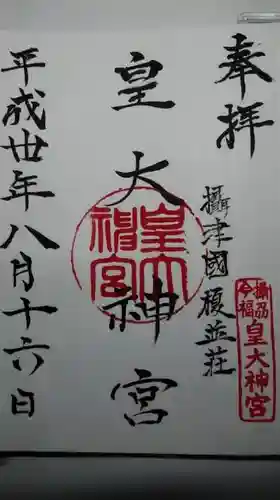 奉拝
攝津國榎並荘
攝刕
今福
皇大神宮
皇大神宮
皇大神宮
平成廿年八月十六日